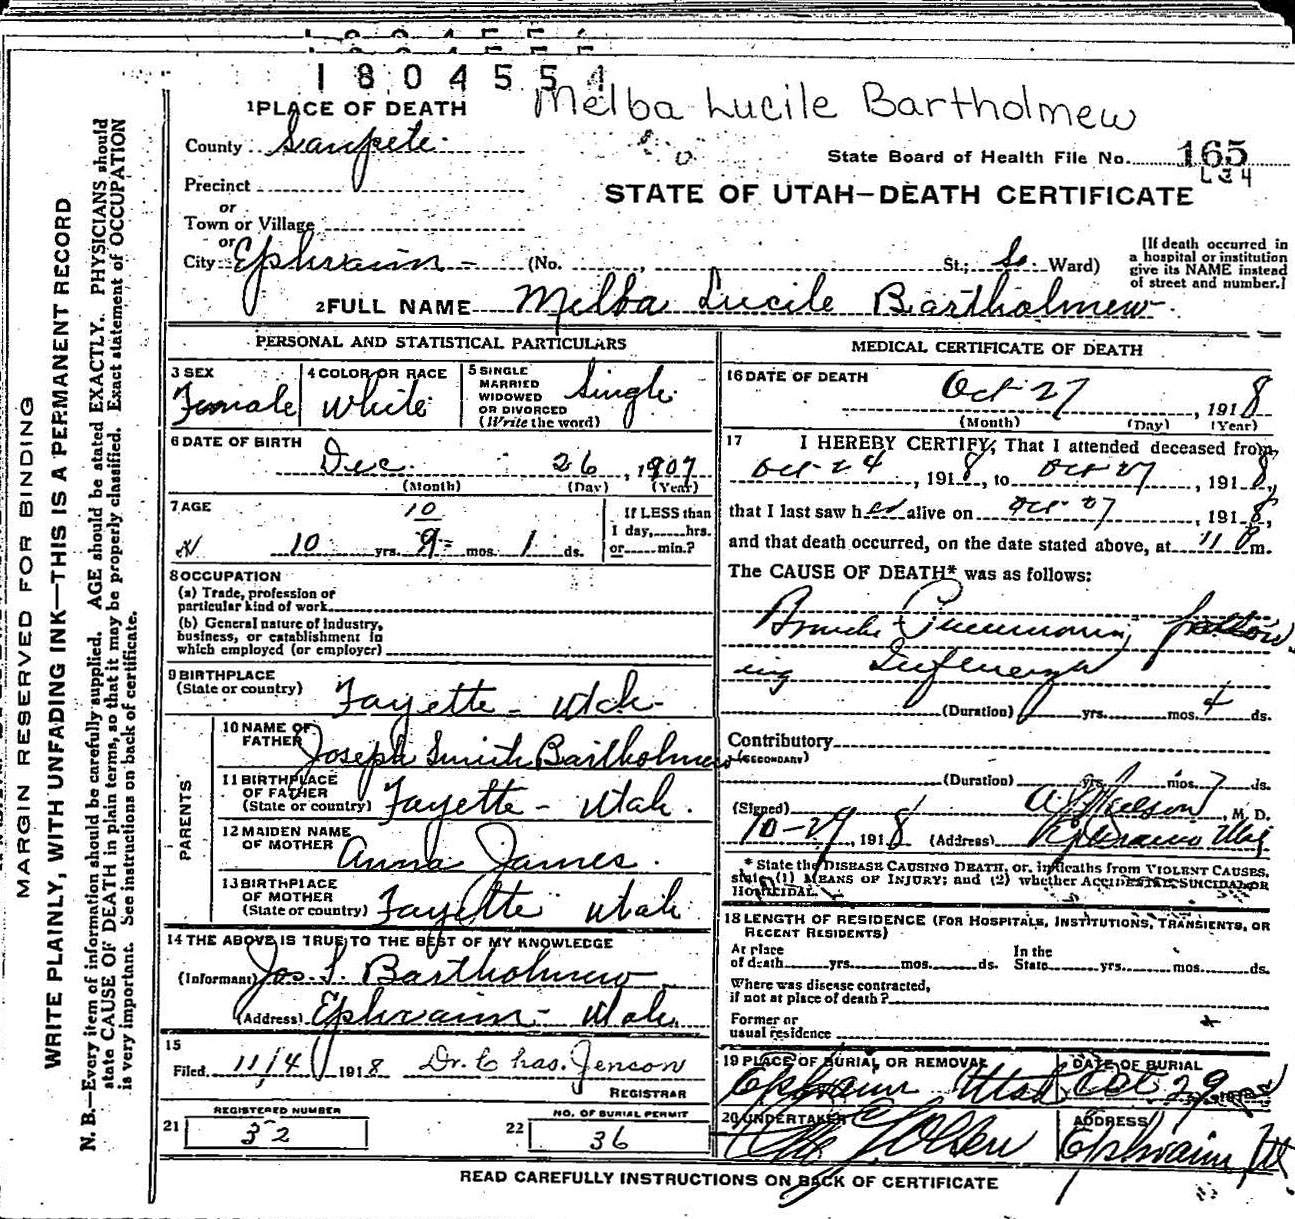 1804554
Melba Lucile Bartholmew
1 PLACE OF DEATH
County Sanpete
State Board of Health File No. 165
Precinct
STATE OF UTAH—DEATH CERTIFICATE
or
Town or Village
or
City Ephraim (No. , St.; So. Ward)
[If death occurred in a hospital or institution give its NAME instead of street and number.]
2 FULL NAME Melba Lucile Bartholmew
PERSONAL AND STATISTICAL PARTICULARS
3 SEX
Female
4 COLOR OR RACE
White
5 SINGLE
MARRIED
WIDOWED
OR DIVORCED
(Write the word)
Single
6 DATE OF BIRTH
Dec. 26, 1907
(Month) (Day) (Year)
7 AGE
10 yrs. 10 9 mos. 1 ds.
If LESS than
1 day, hrs.
or min.?
8 OCCUPATION
(a) Trade, profession or
particular kind of work
(b) General nature of industry,
business, or establishment in
which employed (or employer)
9 BIRTHPLACE
(State or country) Fayette - Utah
PARENTS
10 NAME OF
FATHER Joseph Smith Bartholmew
11 BIRTHPLACE
OF FATHER
(State or country) Fayette - Utah.
12 MAIDEN NAME
OF MOTHER Anna James.
13 BIRTHPLACE
OF MOTHER
(State or country) Fayette Utah
14 THE ABOVE IS TRUE TO THE BEST OF MY KNOWLEDGE
(Informant) Jos. S. Bartholmew
(Address) Ephraim - Utah.
15
Filed 11/4 1918 Dr. Chas. Jenson
REGISTRAR
21 REGISTERED NUMBER
32
22 NO. OF BURIAL PERMIT
36
MEDICAL CERTIFICATE OF DEATH
16 DATE OF DEATH
Oct 27, 1918
(Month) (Day) (Year)
17 I HEREBY CERTIFY, That I attended deceased from
Oct 24, 1918, to Oct 27, 1918,
that I last saw her alive on Oct 27, 1918,
and that death occurred, on the date stated above, at 11 P m.
The CAUSE OF DEATH* was as follows:
Broncho Pneumonia, follow
ing Influenza
(Duration) yrs. mos. 4 ds.
Contributory
(SECONDARY)
(Duration) yrs. mos. 7 ds.
(Signed) Nielson, M. D.
10-29, 1918 (Address) Ephraim Utah
* State the DISEASE CAUSING DEATH, or, in deaths from VIOLENT CAUSES,
state (1) MEANS OF INJURY; and (2) whether ACCIDENTAL, SUICIDAL OR
HOMICIDAL.
18 LENGTH OF RESIDENCE (FOR HOSPITALS, INSTITUTIONS, TRANSIENTS, OR
RECENT RESIDENTS)
At place
of death yrs. mos. ds. In the
State yrs. mos. ds.
Where was disease contracted,
if not at place of death?
Former or
usual residence
19 PLACE OF BURIAL OR REMOVAL
Ephraim Utah
DATE OF BURIAL
Oct 29
20 UNDERTAKER
Olsen
ADDRESS
Ephraim, Ut
READ CAREFULLY INSTRUCTIONS ON BACK OF CERTIFICATE
MARGIN RESERVED FOR BINDING
WRITE PLAINLY, WITH UNFADING INK—THIS IS A PERMANENT RECORD
N. B.—Every item of information should be carefully supplied. AGE should be stated EXACTLY. PHYSICIANS should
state CAUSE OF DEATH in plain terms, so that it may be properly classified. Exact statement of OCCUPATION
is very important. See instructions on back of certificate.